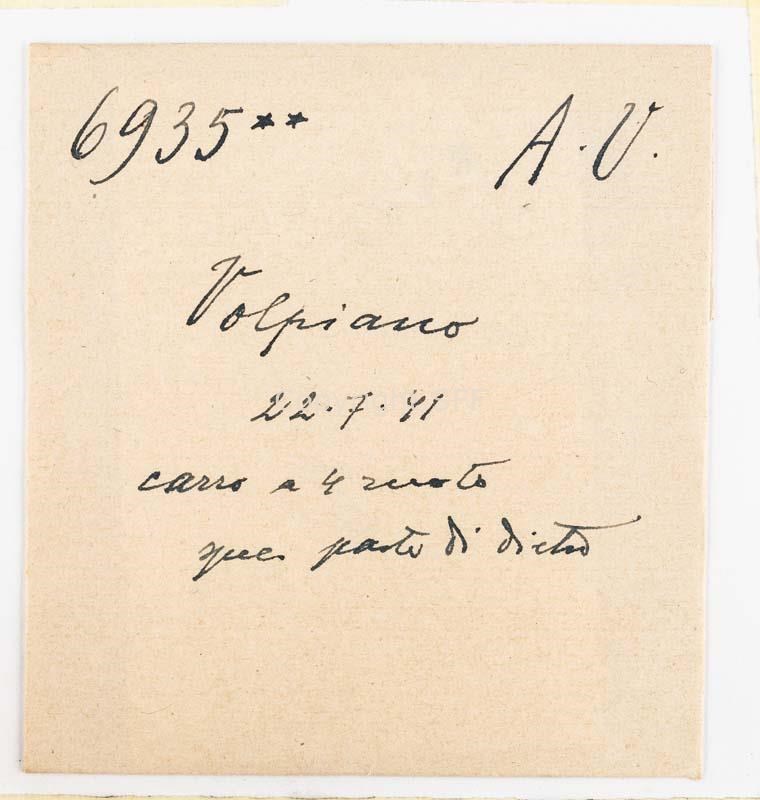 6935** A. V.
Volpiano
22.7.41
carro a 4 ruote
parte di dietro